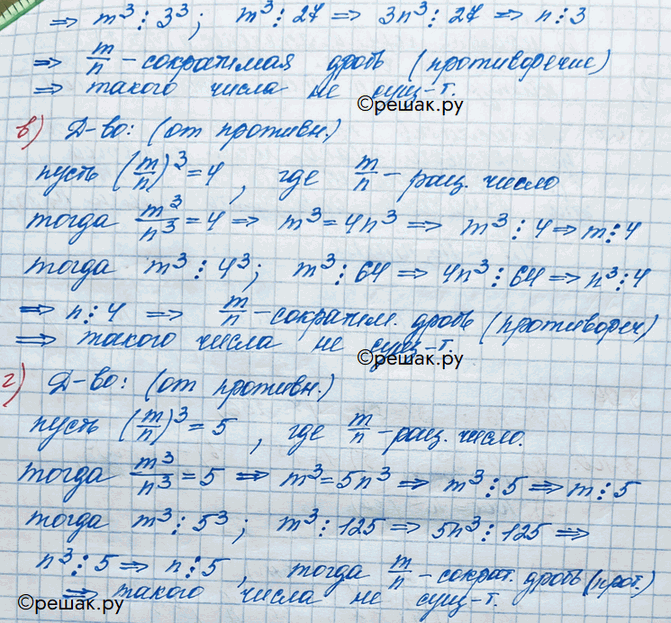 ⇒ m³ ⋮ 3³; m³ ⋮ 27 ⇒ 3n³ ⋮ 27 ⇒ n ⋮ 3
⇒ m/n - сократимая дробь (противоречие)
⇒ такого числа не сущ-т.
©решак.ру
в) Д-во: (от противн.)
пусть (m/n)³ = 4, где m/n - рац. число
тогда m³/n³ = 4 ⇒ m³ = 4n³ ⇒ m³ ⋮ 4 ⇒ m ⋮ 4
тогда m³ ⋮ 4³; m³ ⋮ 64 ⇒ 4n³ ⋮ 64 ⇒ n³ ⋮ 4
⇒ n ⋮ 4 ⇒ m/n - сократим. дробь (противореч)
⇒ такого числа не сущ-т.
©решак.ру
г) Д-во: (от противн.)
пусть (m/n)³ = 5, где m/n - рац. число.
тогда m³/n³ = 5 ⇒ m³ = 5n³ ⇒ m³ ⋮ 5 ⇒ m ⋮ 5
тогда m³ ⋮ 5³; m³ ⋮ 125 ⇒ 5n³ ⋮ 125 ⇒
n³ ⋮ 5 ⇒ n ⋮ 5, тогда m/n - сократ. дробь (прот.)
⇒ такого числа не сущ-т.
©решак.ру